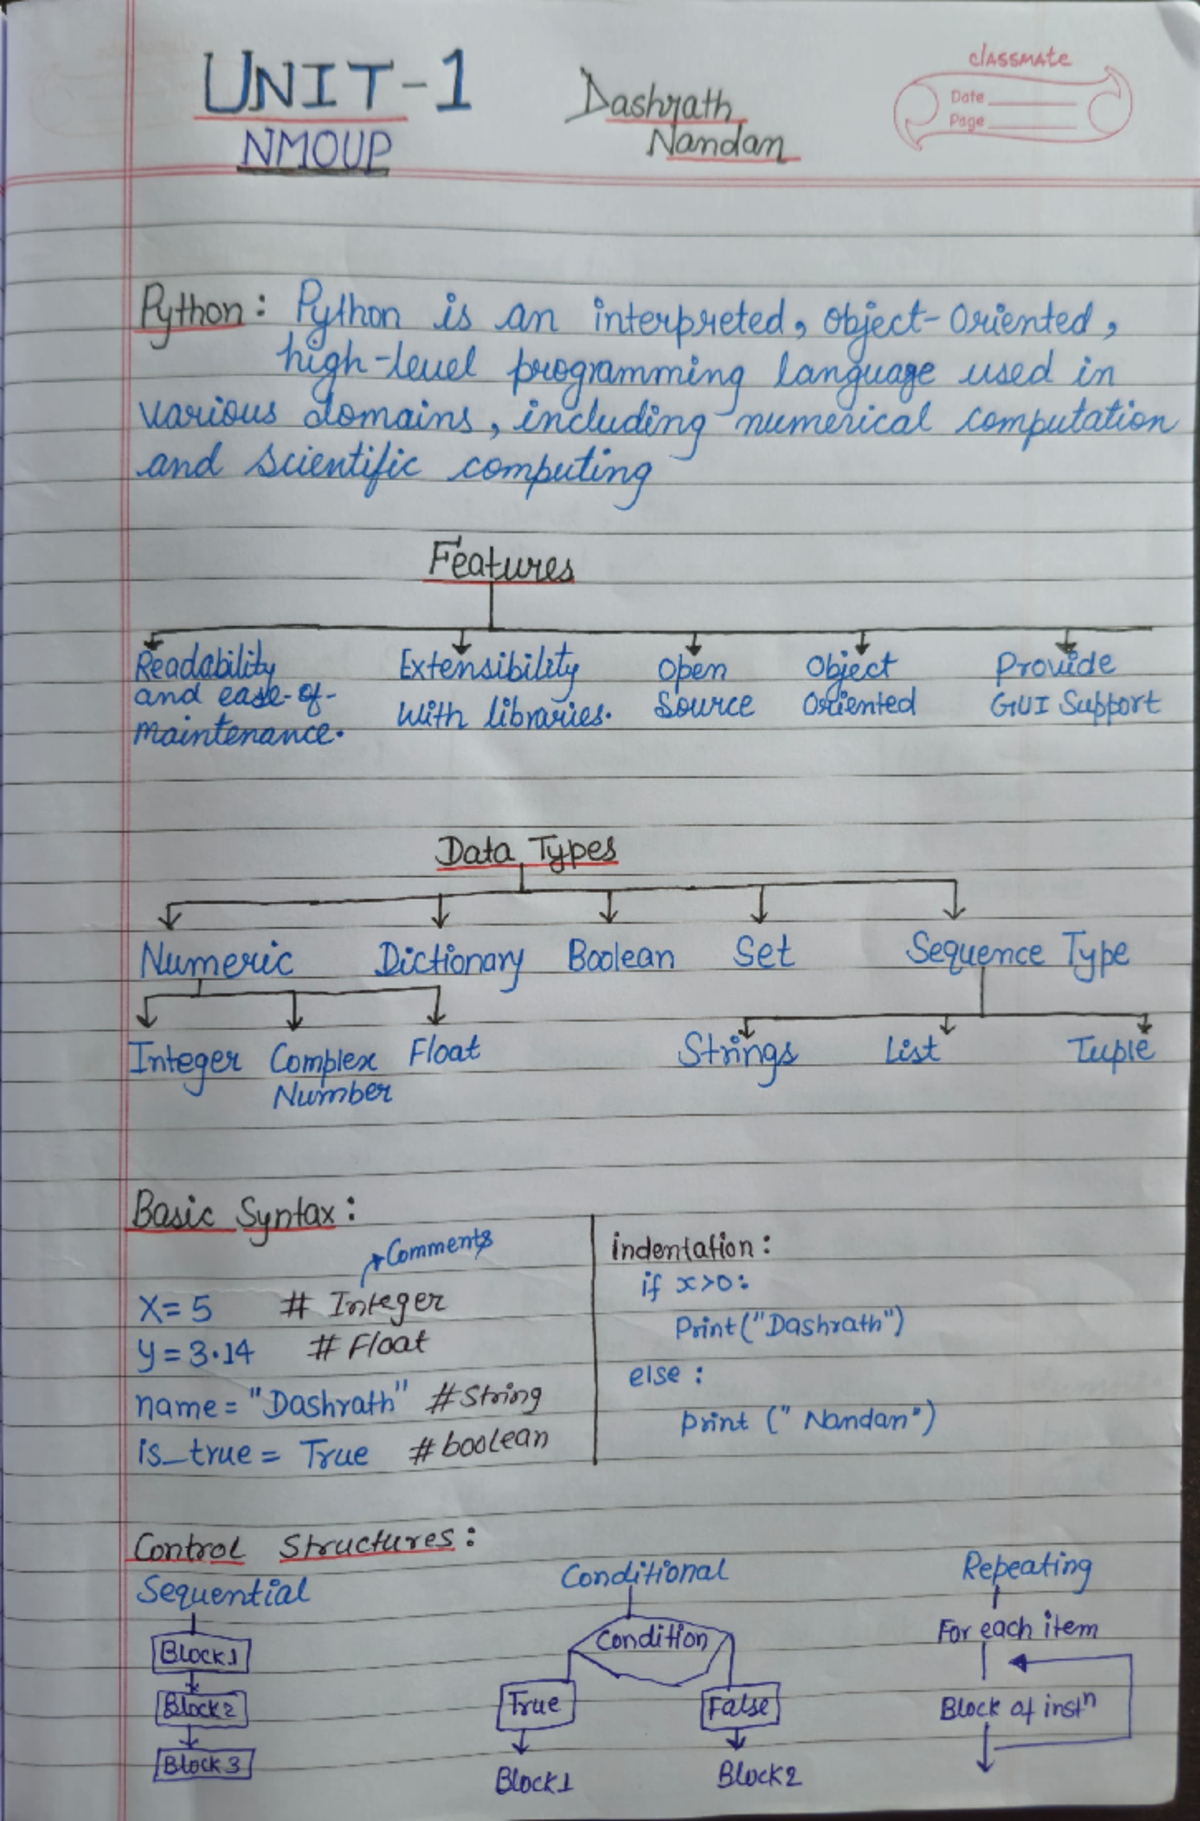 UNIT-1
NMOUP
Dashrath
Nandan
classmate
Date
Page
Python: Python is an interpreted, object-oriented,
high-level programming language used in
various domains, including numerical computation
and scientific computing
Features
Readability
and ease-of-
maintenance.
Extensibility
with libraries.
Open
Source
Object
Oriented
Provide
GUI Support
Data Types
Numeric Dictionary Boolean Set Sequence Type
Integer Complex Float Strings List Tuple
Number
Basic Syntax:
Comments
X = 5 # Integer
y = 3.14 # Float
name = "Dashrath" #String
is_true = True #boolean
indentation:
if x>0:
Print("Dashrath")
else:
print (" Nandan")
Control Structures:
Sequential
Block1
Block2
Block3
Conditional
Condition
True False
Block1 Block2
Repeating
For each item
Block of instn